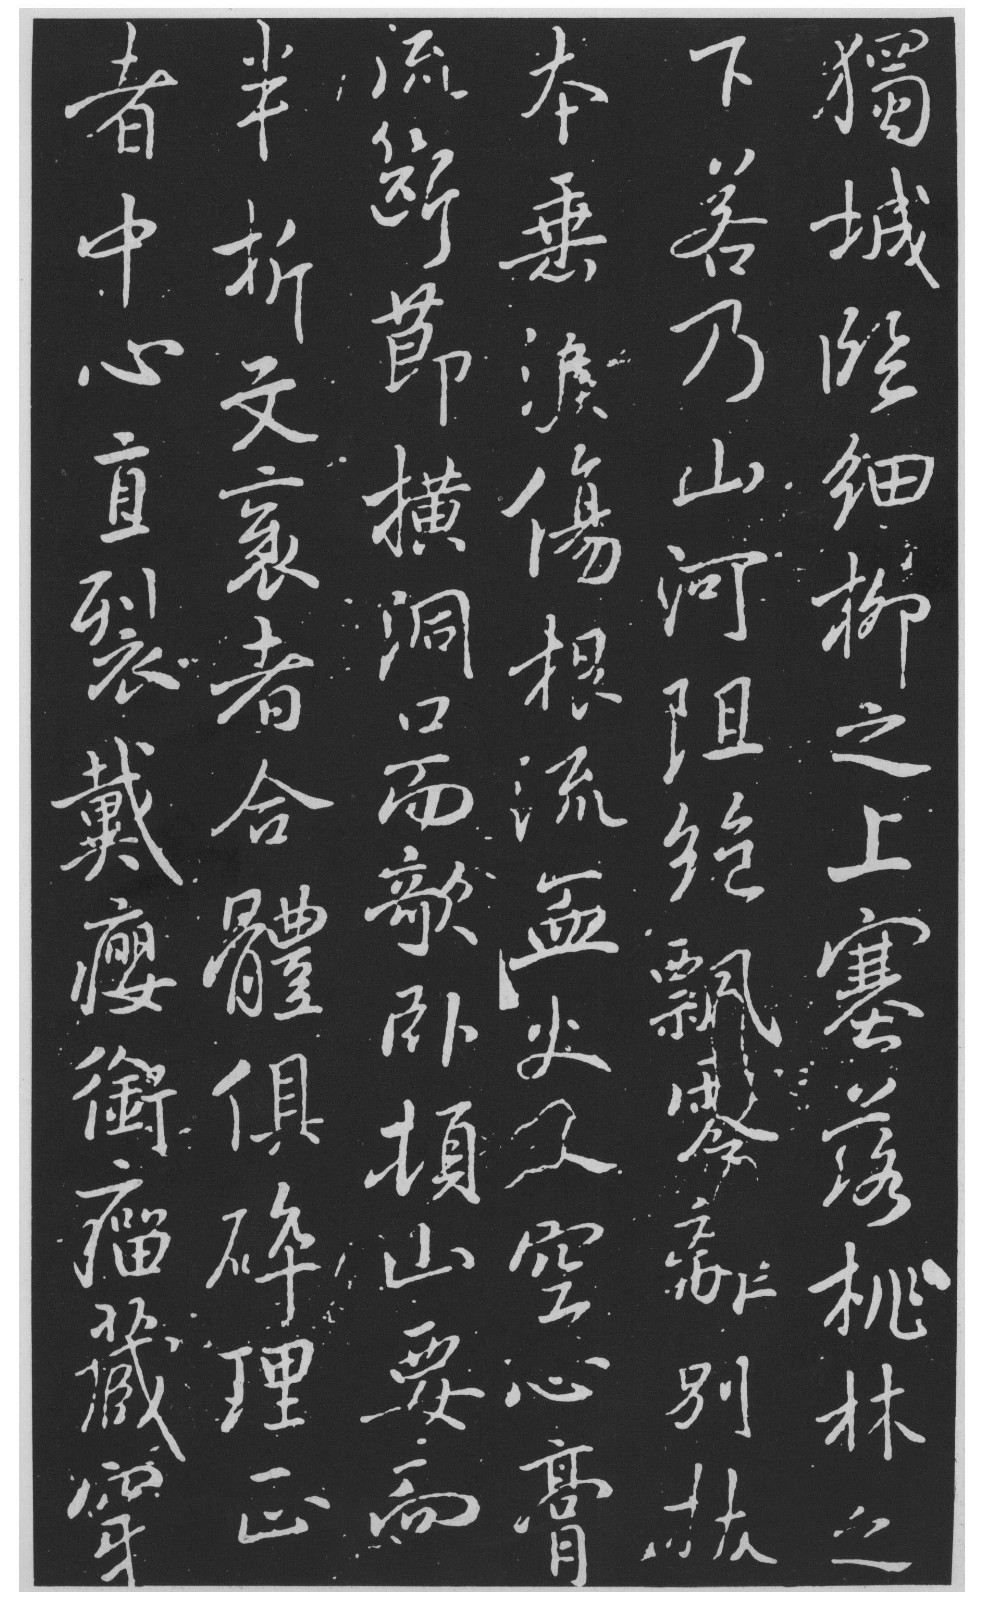 獨城臨細柳之上塞落桃林之
下若乃山河阻絕飄零離別拔
本垂淚傷根流血火入空心膏
流斷節橫洞口而欹臥頓山要而
半折文裏者合體俱碎理正
者中心直裂戴癭銜瘤藏穿